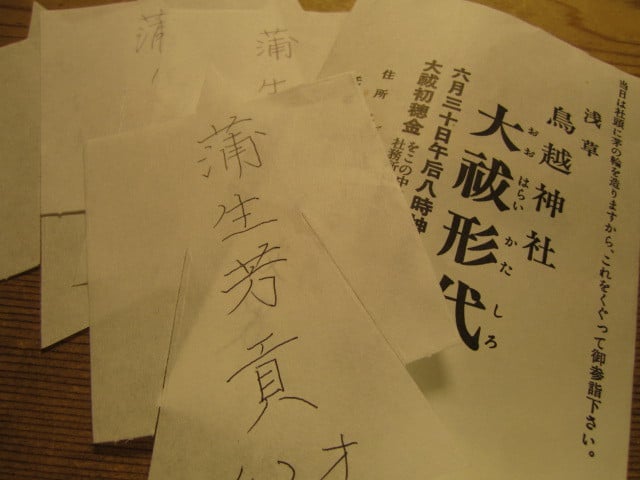 当日は社頭に茅の輪を造りますから、これをくぐって御参詣下さい。
浅草
鳥越神社
おおはらいかたしろ
大祓形代
六月三十日午后八時神
大祓初穂金をこの中
社務所
住所
蒲生芳貢
才
蒲生
蒲